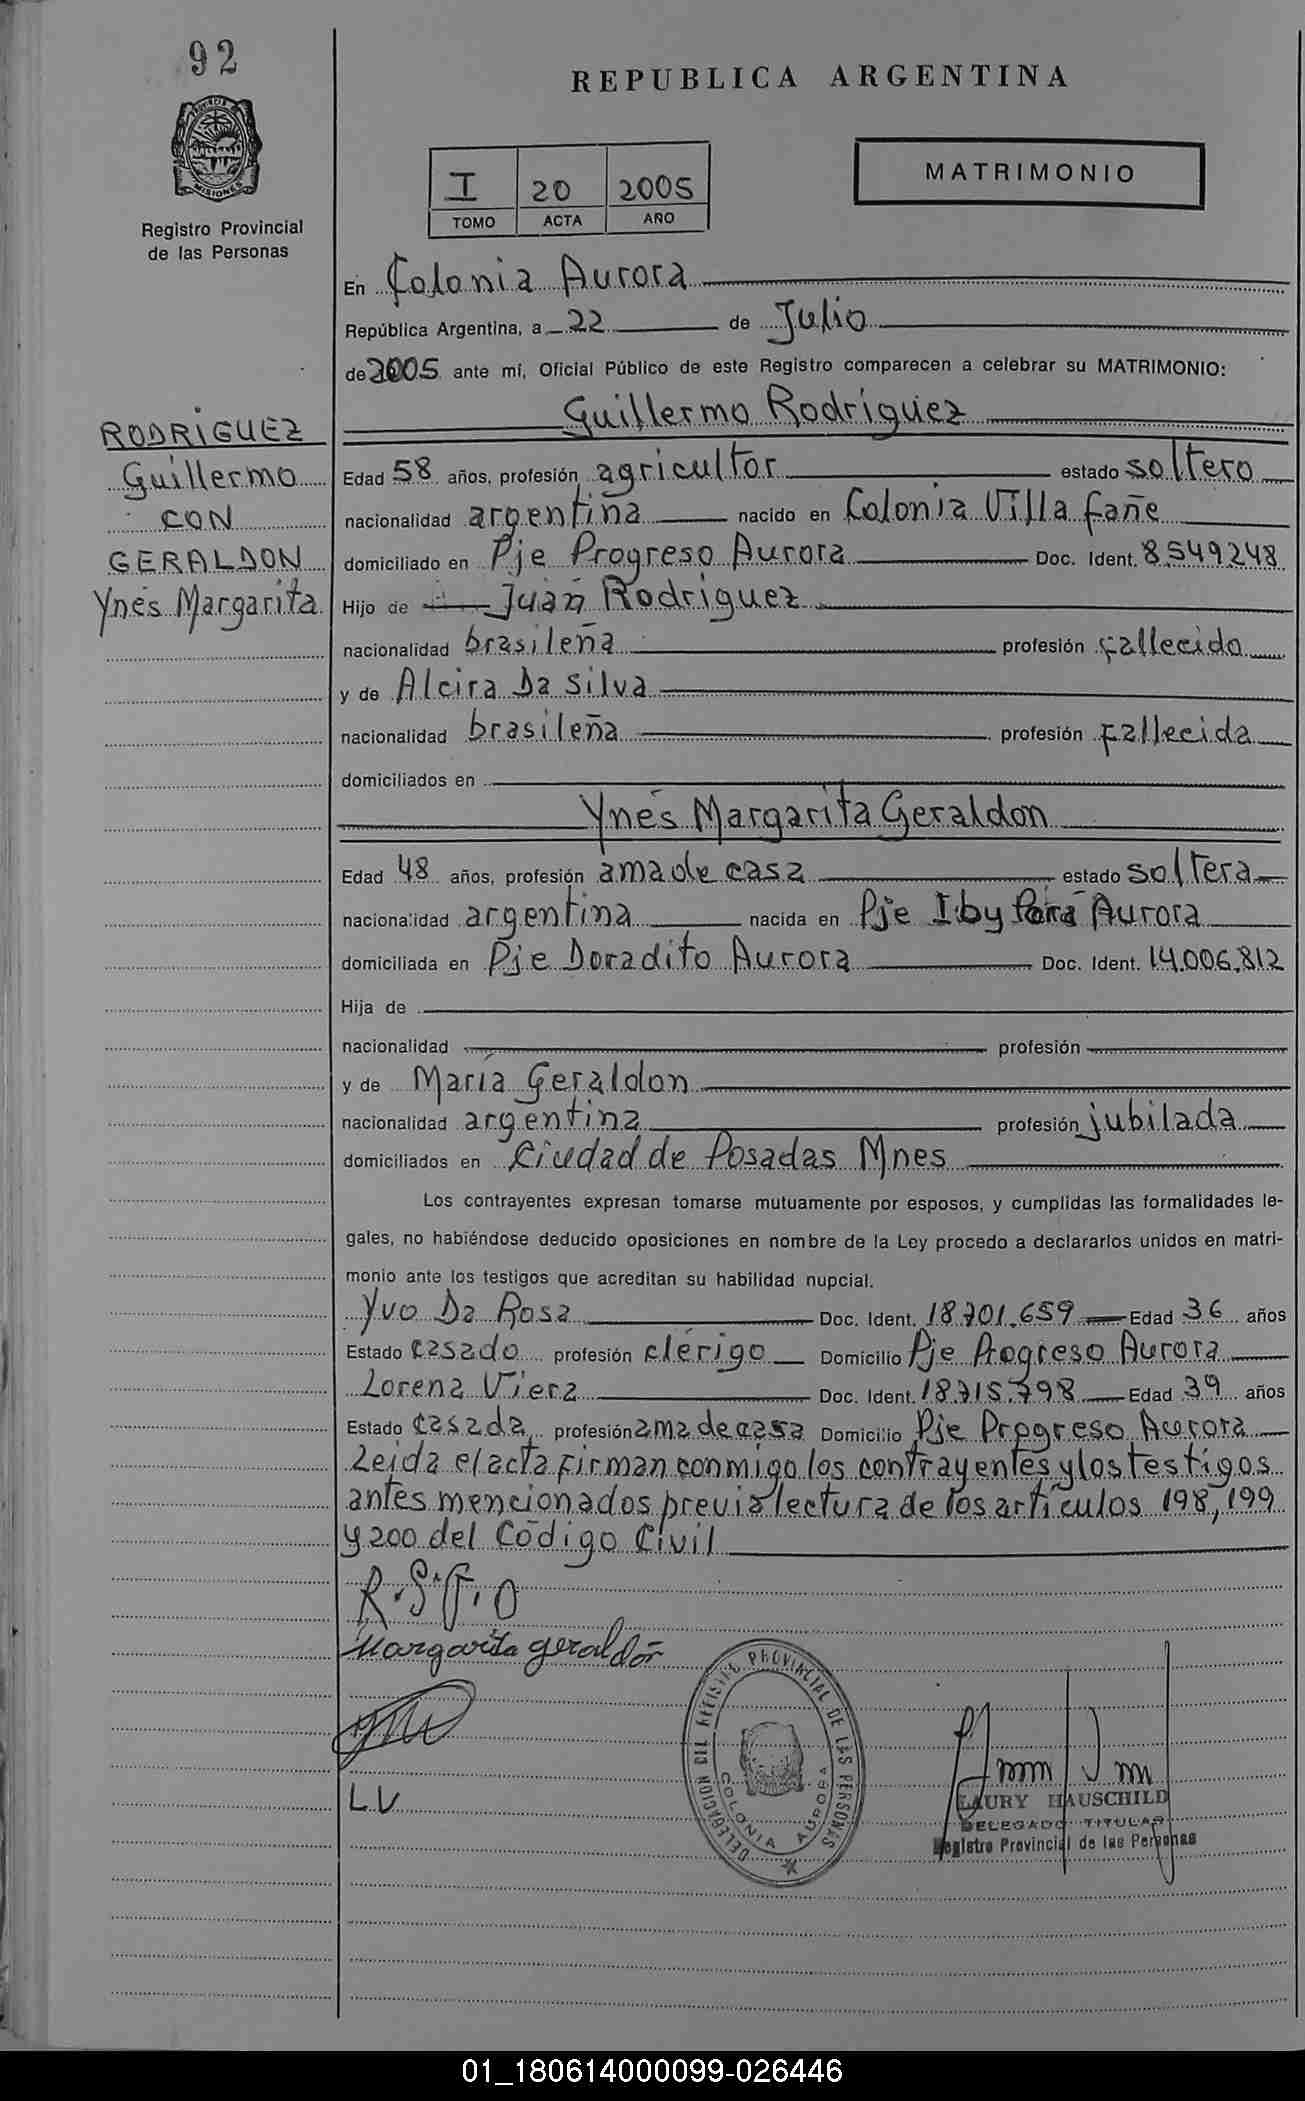 92
REPUBLICA ARGENTINA
MISIONES
Registro Provincial
de las Personas
I 20 2005
TOMO ACTA AÑO
MATRIMONIO
En Colonia Aurora
República Argentina, a 22 de Julio
de 2005 ante mí, Oficial Público de este Registro comparecen a celebrar su MATRIMONIO:
RODRIGUEZ
Guillermo
CON
GERALDON
Ynés Margarita
Guillermo Rodriguez
Edad 58 años, profesión agricultor estado soltero
nacionalidad argentina nacido en Colonia Villa fañe
domiciliado en Pje Progreso Aurora Doc. Ident. 8.549.248
Hijo de Juan Rodriguez
nacionalidad brasileña profesión fallecido
y de Alcira Da Silva
nacionalidad brasileña profesión fallecida
domiciliados en
Ynés Margarita Geraldon
Edad 48 años, profesión ama de casa estado soltera
nacionalidad argentina nacida en Pje Iby Aurora
domiciliada en Pje Doradito Aurora Doc. Ident. 14.006.812
Hija de
nacionalidad profesión
y de María Geraldon
nacionalidad argentina profesión jubilada
domiciliados en Ciudad de Posadas Mnes
Los contrayentes expresan tomarse mutuamente por esposos, y cumplidas las formalidades le-
gales, no habiéndose deducido oposiciones en nombre de la Ley procedo a declararlos unidos en matri-
monio ante los testigos que acreditan su habilidad nupcial.
Yvo Da Rosa Doc. Ident. 18.701.659 Edad 36 años
Estado casado profesión clérigo Domicilio Pje Progreso Aurora
Lorena Viera Doc. Ident. 18.715.798 Edad 39 años
Estado casada profesión ama de casa Domicilio Pje Progreso Aurora
Leida el acta firman conmigo los contrayentes y los testigos
antes mencionados previa lectura de los artículos 198, 199
y 200 del Código Civil
R.S.G.O
Margarita geraldón
L.V
DELEGACION DEL REGISTRO PROVINCIAL DE LAS PERSONAS
COLONIA AURORA
LAURY HAUSCHILD
DELEGADO TITULAR
Registro Provincial de las Personas
01_180614000099-026446